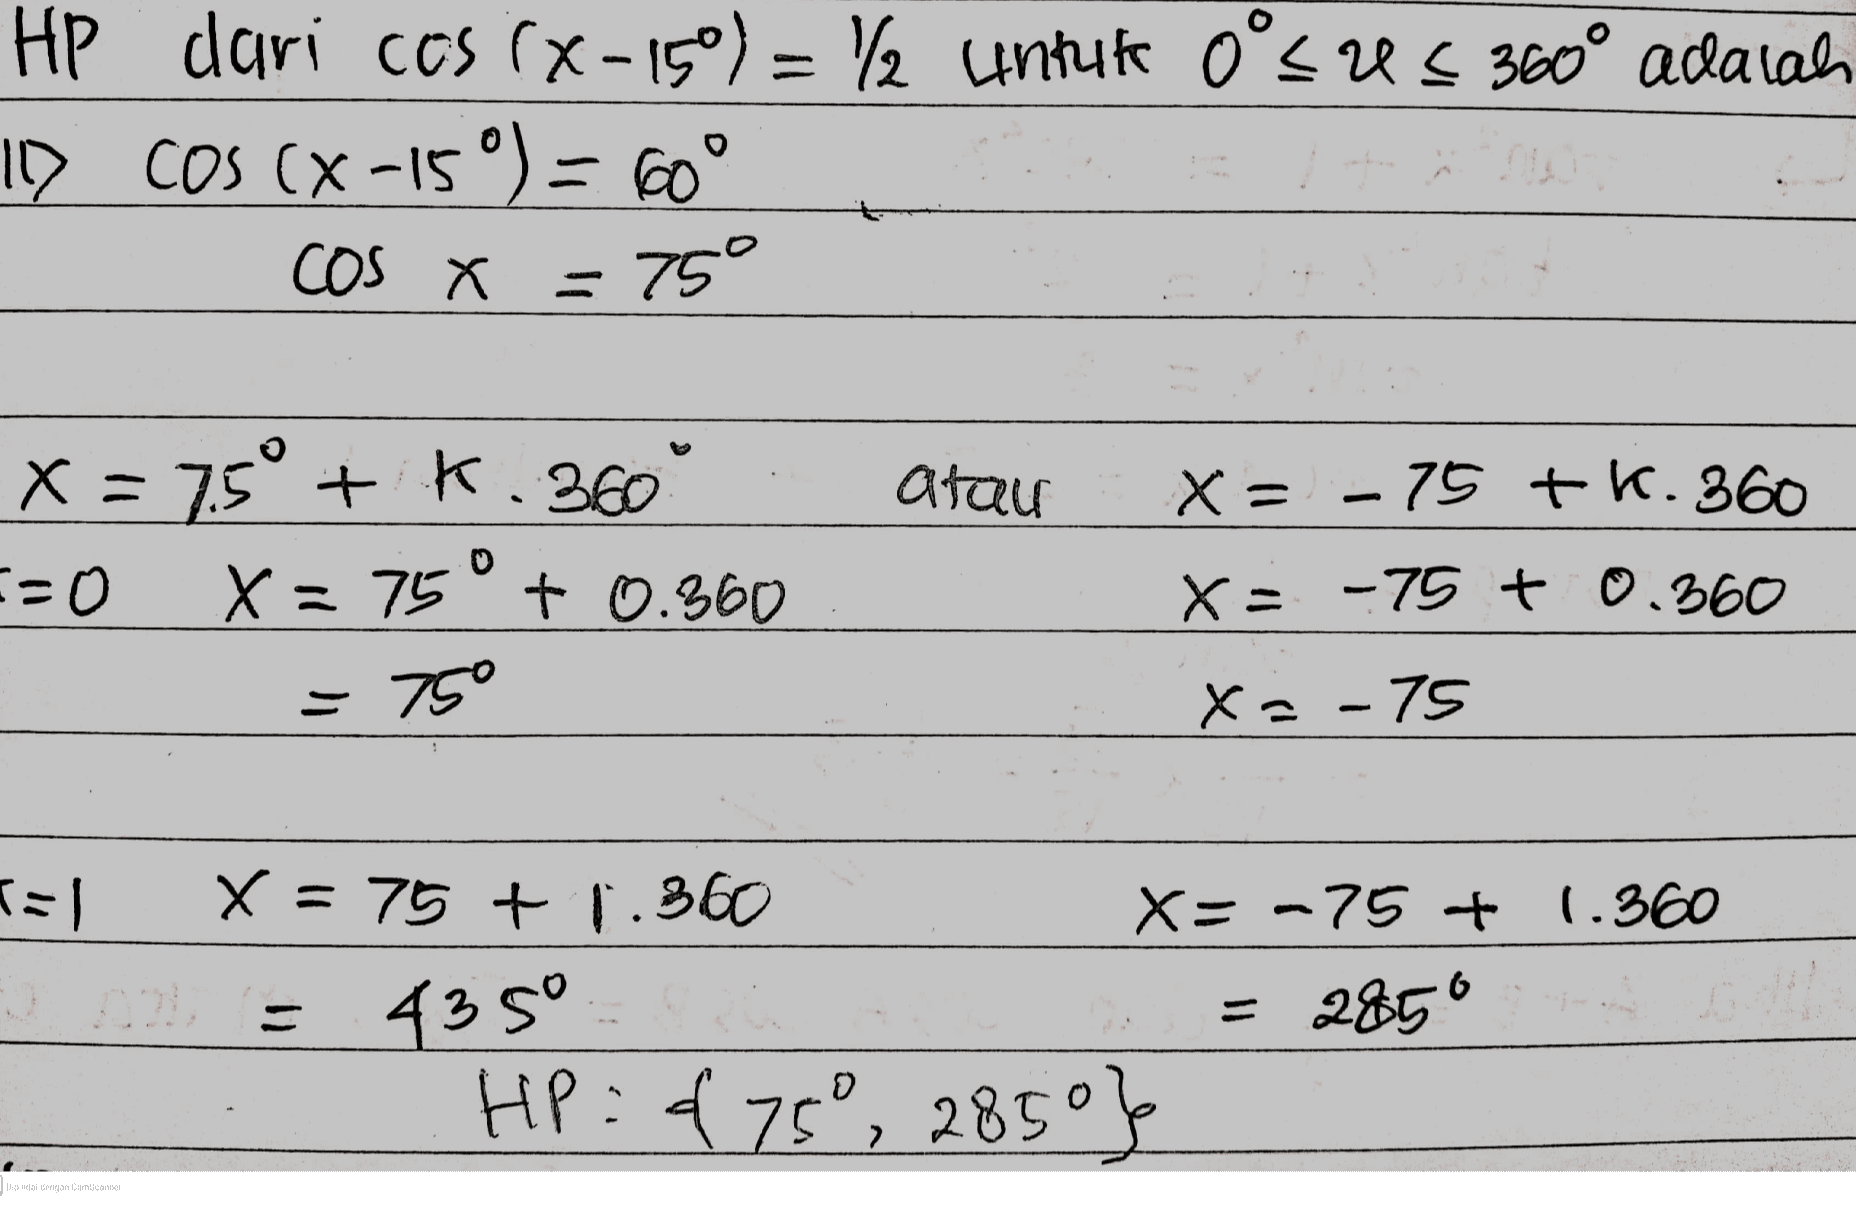 HP dari cos (x-15°) = 1/2 untuk 0° ≤ x ≤ 360° adalah
cos (x-15°) = 60°
cos x = 75°
x = 75° + k. 360° atau x = -75 + k. 360
=0 x = 75° + 0.360 x = -75 + 0.360
= 75° x = -75
=1 x = 75 + 1.360 x = -75 + 1.360
= 435° = 285°
HP: {75°, 285°}
Dipindai dengan CamScanner